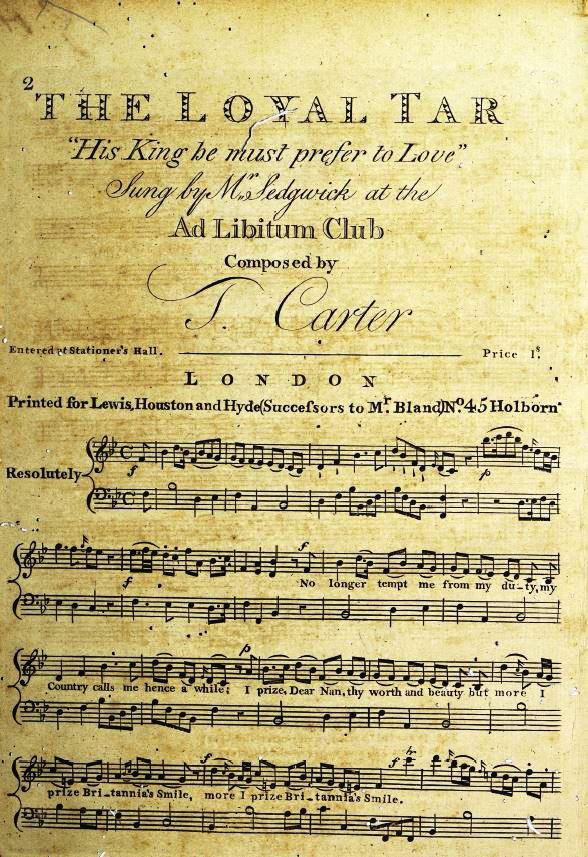 2
THE LOYAL TAR
"His King he must prefer to Love"
Sung by Mr. Sedgwick at the
Ad Libitum Club
Composed by
T. Carter
Entered at Stationer's Hall. Price 1s.
LONDON
Printed for Lewis, Houston and Hyde (Succeſsors to Mr. Bland) No. 45 Holborn
Resolutely
f p
f f
No longer tempt me from my du-ty, my
p
Country calls me hence a while; I prize, Dear Nan, thy worth and beauty but more I
f f tr
prize Bri-tannia's Smile, more I prize Bri-tannia's Smile.